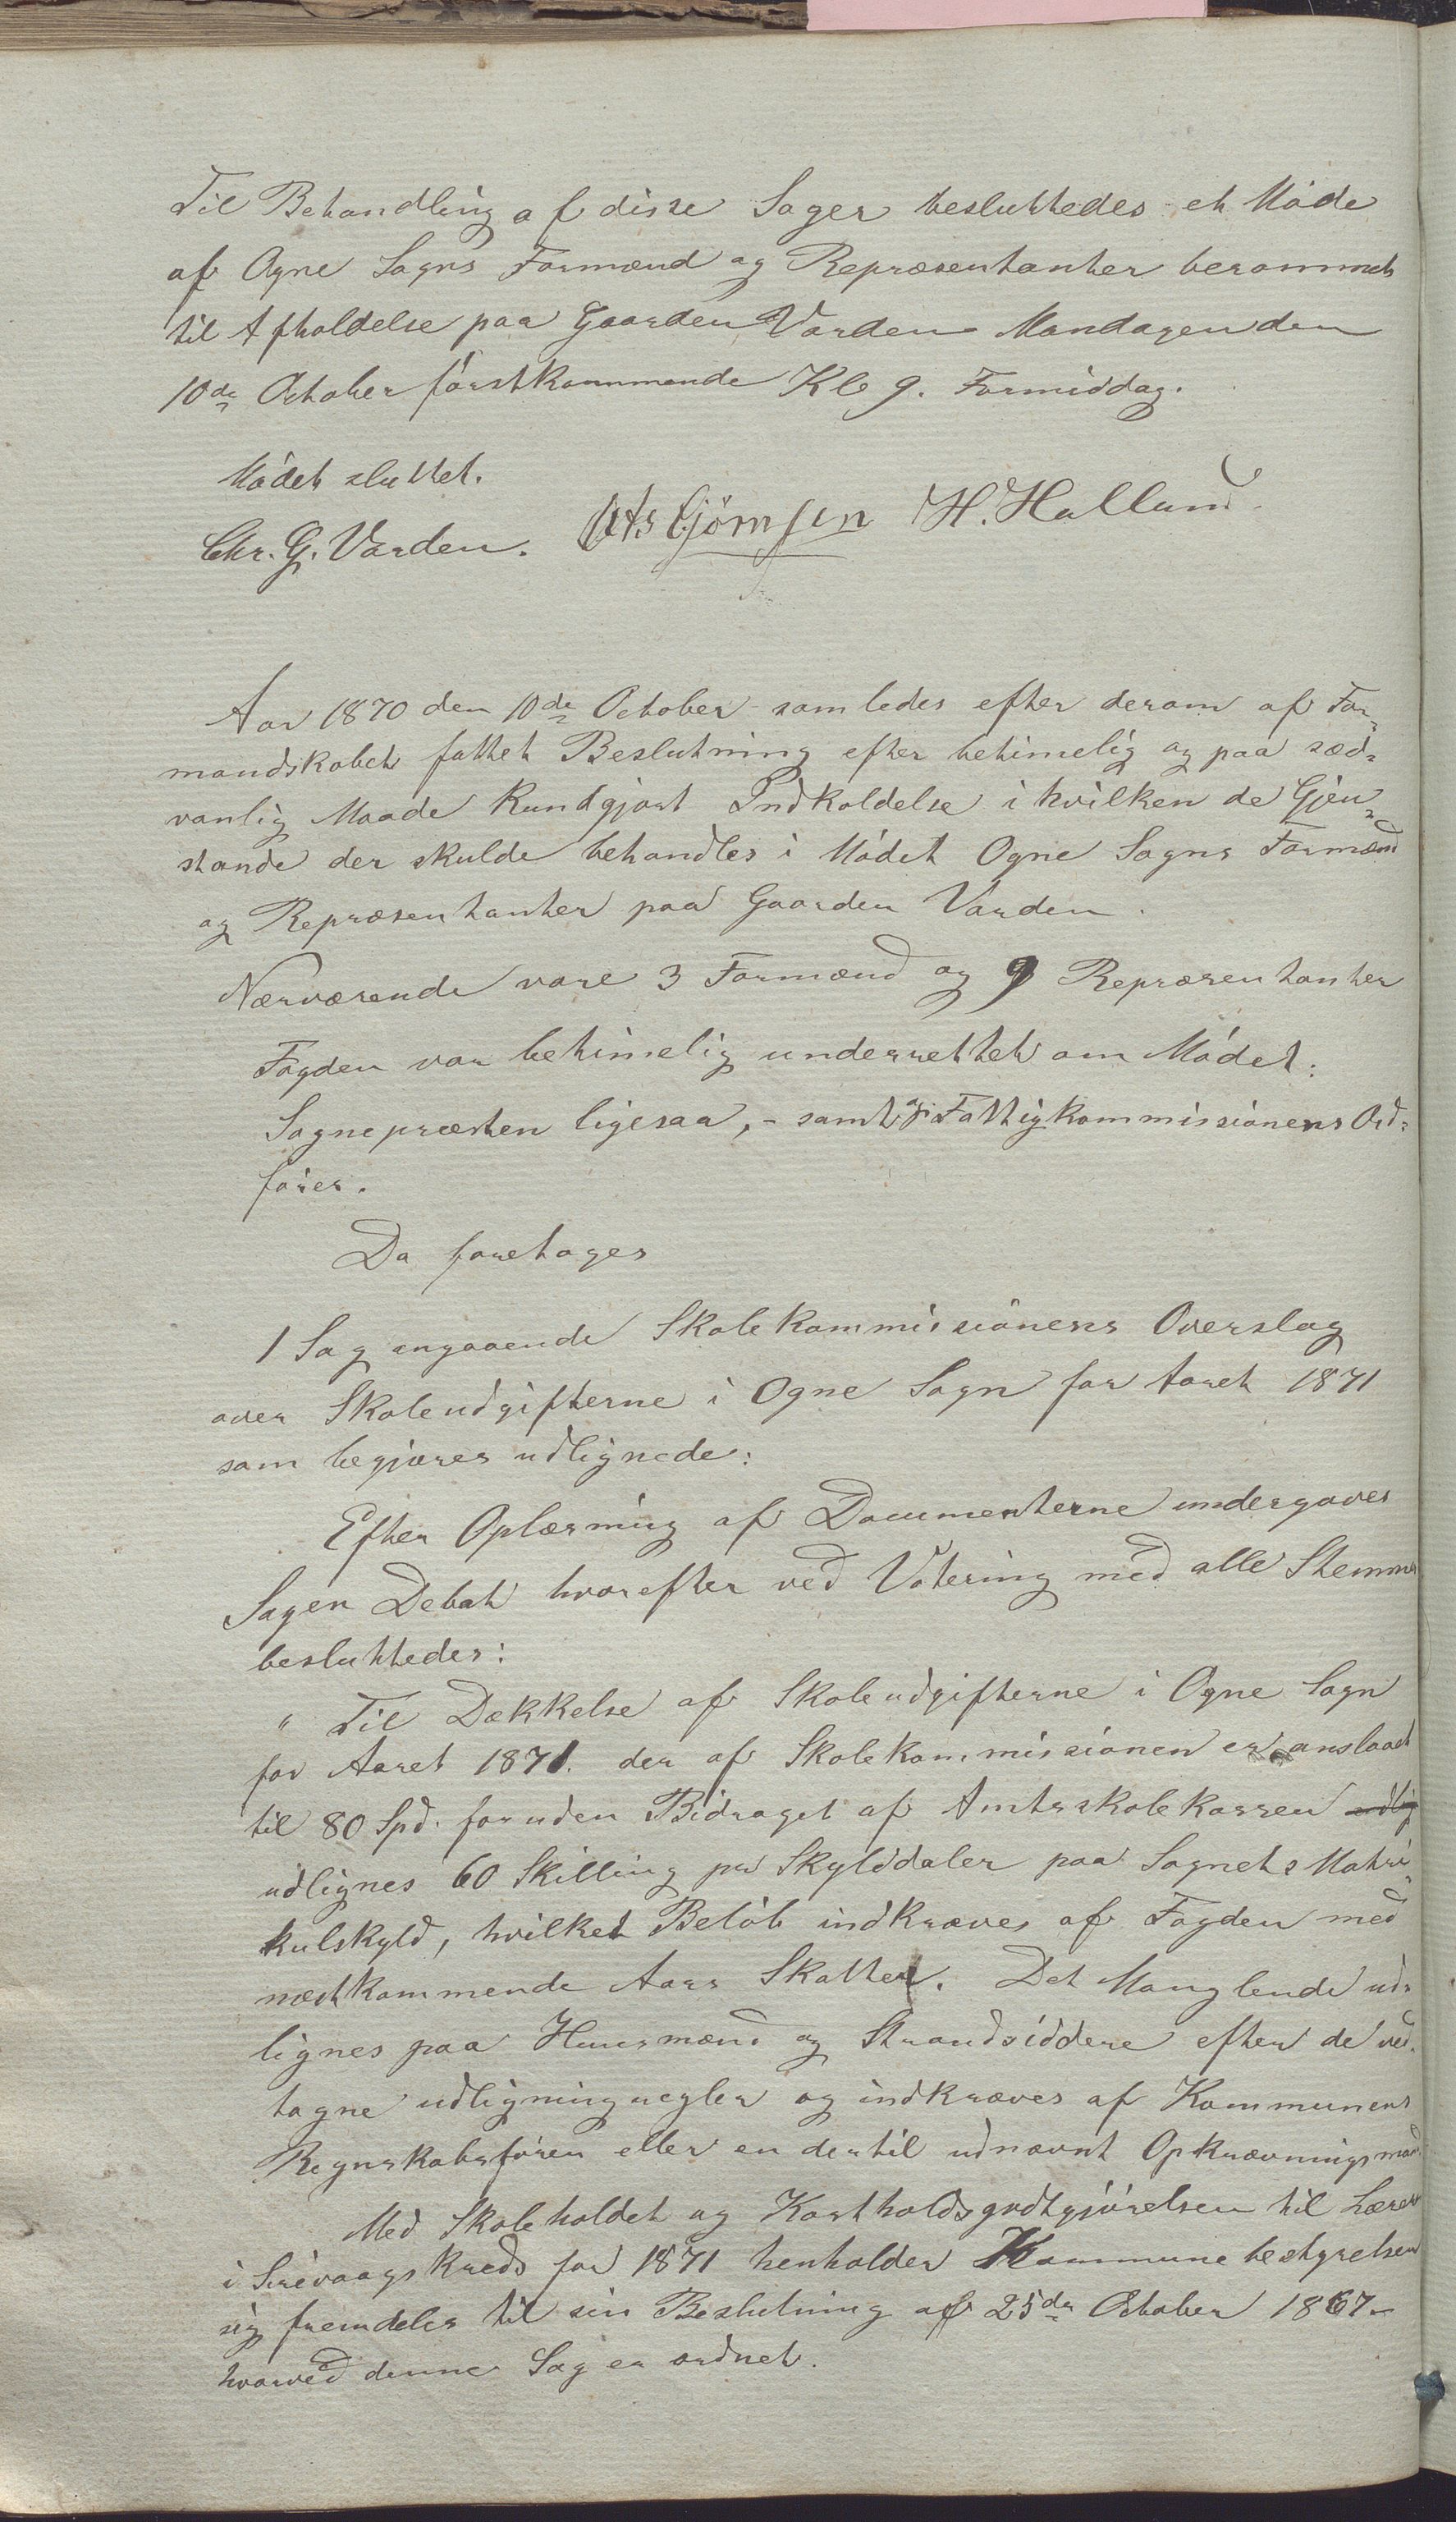 Til Behandling af disse Sager besluttedes et Møde
af Ogne Sogns Formænd og Repræsentanter berammet
til Afholdelse paa Gaarden Varden Mandagen den
10de October førstkommende Kl 9. Formiddag.
Mødet sluttet.
Chr. G. Varden. H. Halland.
Aar 1870 den 10de October samledes efter derom af For„
mandskabet fattet Beslutning efter betimelig og paa sæd„
vanlig Maade kundgjort Indkaldelse i hvilken de Gjen„
stande der skulde behandles i Mødet Ogne Sogns Formænd
og Repræsentanter paa Gaarden Varden.
Nærværende vare 3 Formænd og 9 Repræsentanter
Fogden var betimelig underrettet om Mødet:
Sognepræsten ligesaa, – samt og Fattigkommissionens Ord„
fører.
Da foretoges
1 Sag angaaende Skolekommissionens Overslag
over Skoleudgifterne i Ogne Sogn for Aaret 1871
som begjæres udlignede:
Efter Oplæsning af Documenterne undergaves
Sagen Debat hvorefter ved Votering med alle Stemmer
besluttedes:
„ Til Dækkelse af Skoleudgifterne i Ogne Sogn
for Aaret 1871. der af Skolekommissionen er anslaaet
til 80 Spd. foruden Bidraget af Amtsskolekassen udlig
udlignes 60 Skilling pr Skylddaler paa Sognets Matri„
kulskyld, hvilket Beløb indkræves af Fogden med
næstkommende Aars Skatter. Det Manglende ud„
lignes paa Huusmænd og Strandsiddere efter de ved„
tagne udligningregler og indkræves af Kommunens
Regnskabsfører eller en dertil udnævnt Opkrævningsmand
Med Skoleholdet og Kostholdsgodtgjørelsen til Lærer
i Sirevaags kreds for 1871 henholder Kommunebestyrelsen
sig fremdeles til sin Beslutning af 25de October 1867 –
hvorved denne Sag er ordnet.